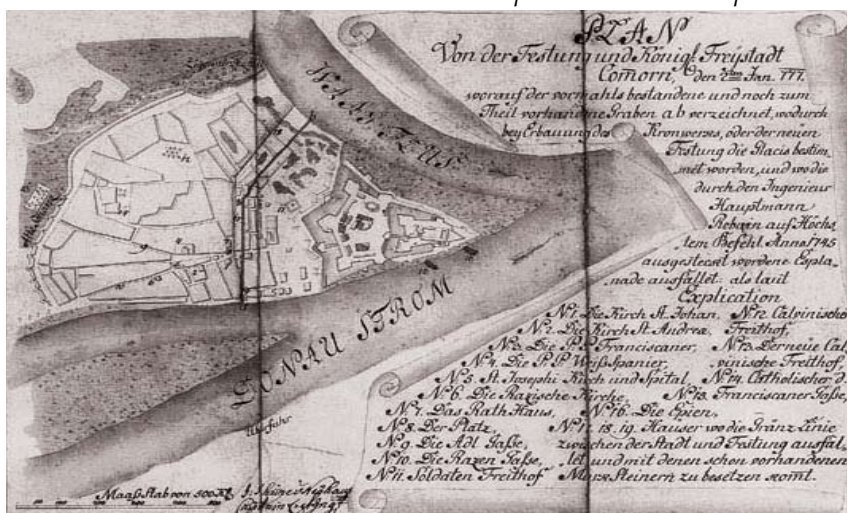 PLAN
Von der Festung und Königl. Freÿstadt
Comorn, den Jan. 777.
worauf der vormahls bestandene und noch zum
Theil vorhandene Graben ab verzeichnet, wodurch
beÿ Erbauung des Kronwerkes, oder der neuen
Festung die Glacis bestim-
met worden, und wo die
durch den Ingenieur
Hauptmann
Rebain auf Höchs
tem Befehl Anno 1745
ausgesteckt wordene Espla-
nade ausfallet: als laut
Explication
Nº1. Die Kirch St. Johan,
Nº2. Die Kirch St. Andrea,
Nº3. Die P.P. Franciscaner,
Nº4. Die P. P. Weiß Spanier,
Nº5. St. Josephi Kirch und Spital
Nº6. Die Razische Kirche,
Nº7. Das Rath Haus,
Nº8. Der Platz,
Nº9. Die Adl. Gaße,
Nº10. Die Razen Gaße,
Nº11. Soldaten Freithof
Nº12. Calvinische
Freithof,
Nº13. Der neue Cal
vinische Freithof,
Nº14. Catholischer d.
Franciscaner Gaße,
Nº16. Die
Nº17. 18. 19. Hauser wo die Gränz Linie
zwischen der Stadt und Festung ausfal,
let und mit denen schon vorhandenen
Steinern zu besetzen komt.
WAAG FLUS
DONAU STROM
Überfuhr
Maaß Stab von 500